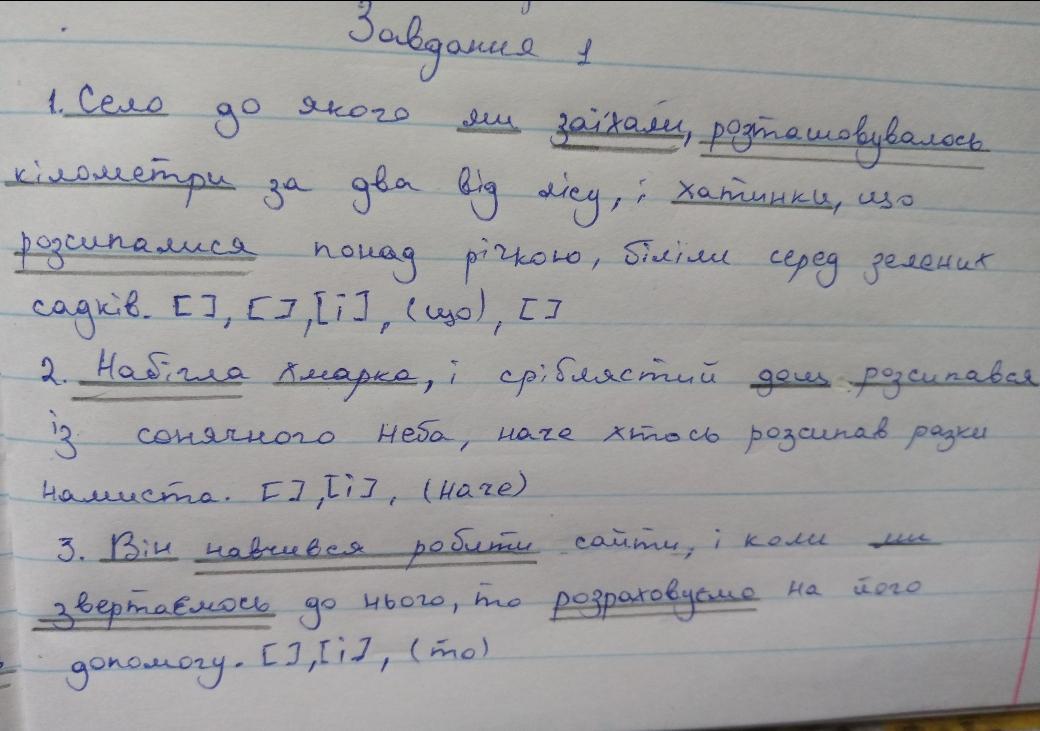 Завдання 1
1. Село до якого ми заїхали, розташовувалось
кілометри за два від лісу, і хатинки, що
розсипалися понад річкою, біліли серед зелених
садків. [ ], [ ], [і], (що), [ ]
2. Набігла хмарка, і сріблястий дощ розсипався
із сонячного неба, наче хтось розсипав разки
намиста. [ ], [і], (наче)
3. Він навчився робити сайти, і коли ми
звертаємось до нього, то розраховуємо на його
допомогу. [ ], [і], (то)